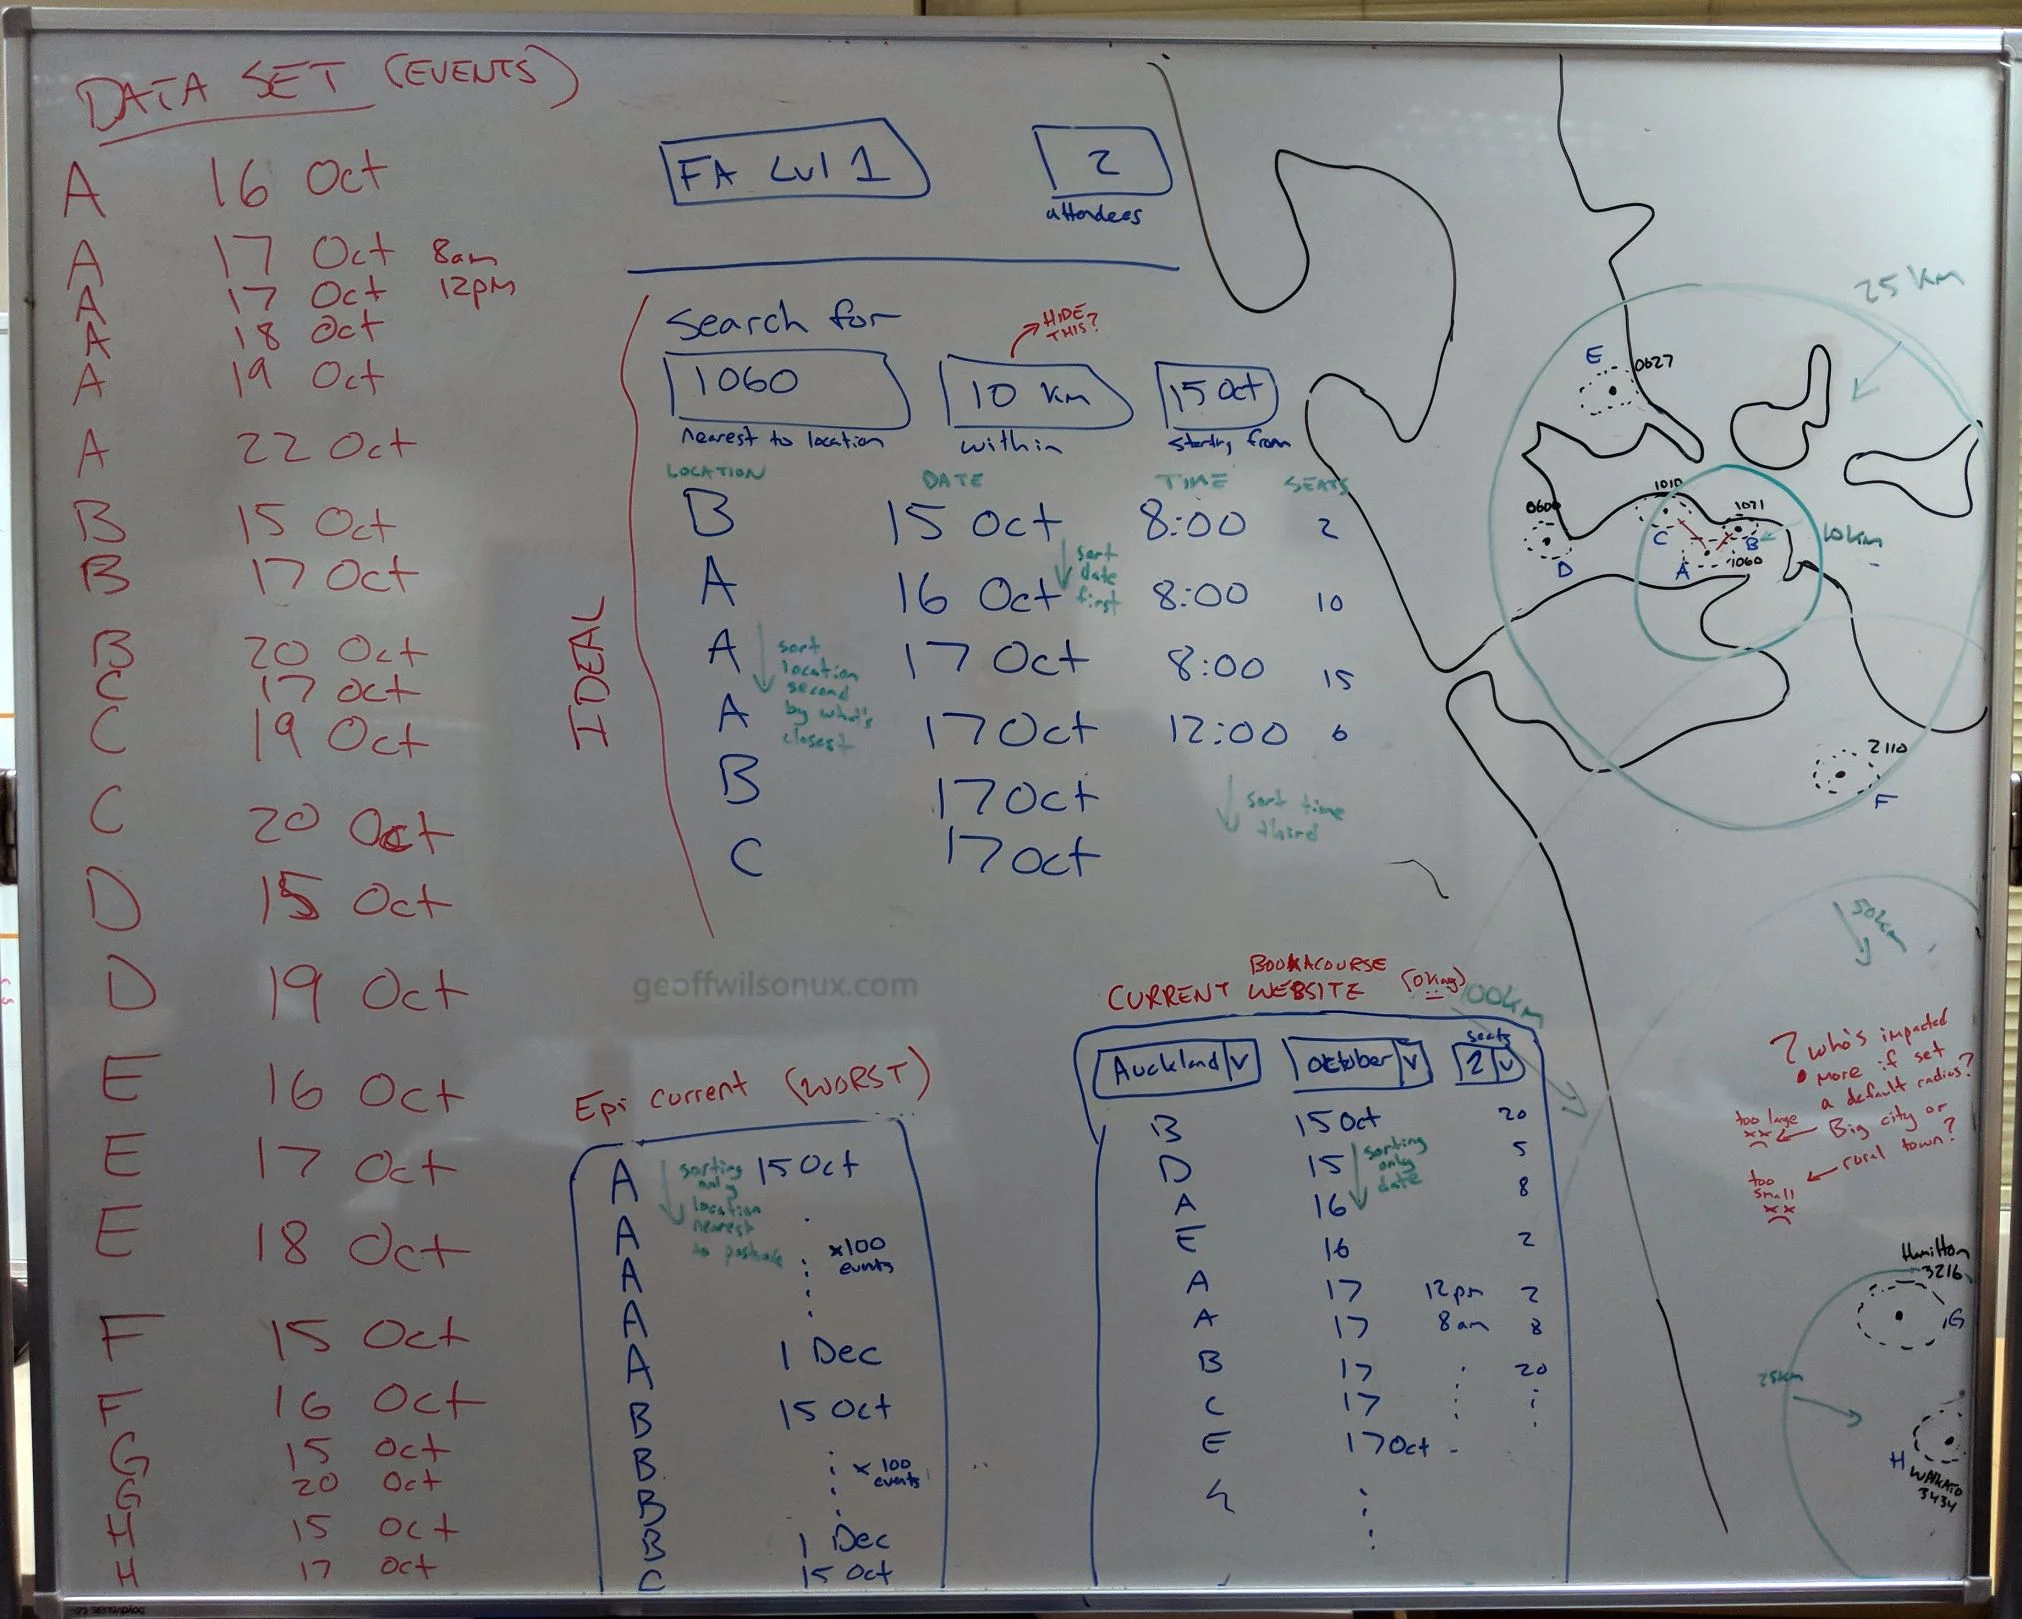 DATA SET (EVENTS)
A 16 Oct
A 17 Oct 8am
A 17 Oct 12pm
A 18 Oct
A 19 Oct
A 22 Oct
B 15 Oct
B 17 Oct
B 20 Oct
C 17 Oct
C 19 Oct
C 20 Oct
D 15 Oct
D 19 Oct
E 16 Oct
E 17 Oct
E 18 Oct
F 15 Oct
F 16 Oct
G 15 Oct
G 20 Oct
H 15 Oct
H 17 Oct
FA Lvl 1
2
attendees
IDEAL
Search for
HIDE
THIS?
1060
10 km
15 Oct
nearest to location
within
starting from
LOCATION DATE TIME SEATS
B 15 Oct 8:00 2
A 16 Oct 8:00 10
A 17 Oct 8:00 15
A 17 Oct 12:00 6
B 17 Oct
C 17 Oct
sort
date
first
sort
location
second
by what's
closest
sort time
third
geoffwilsonux.com
Epi current (WORST)
A 15 Oct
A
A
A
A 1 Dec
B 15 Oct
B
B
B 1 Dec
C 15 Oct
sorting
only
location
nearest
to postcode
x100
events
x100
events
BOOKACOURSE
CURRENT WEBSITE (okay)
Auckland v
October v
seats
2 v
B 15 Oct 20
D 15 5
A 16 8
E 16 2
A 17 12pm 2
A 17 8am 8
B 17 20
C 17
E 17 Oct
sorting
only
date
25 km
E
0627
1010
1071
0600
C
B
10km
D
A
1060
2110
F
50km
100km
? who's impacted
more if set
a default radius?
Big city or
rural town?
too large
too
small
Hamilton
3216
G
25km
H
WAIKATO
3434